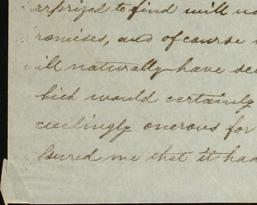 urprized to find will no
romises, and of course
ill naturally have se
hich would certainly
ceedingly onerous for
ssured me that it had